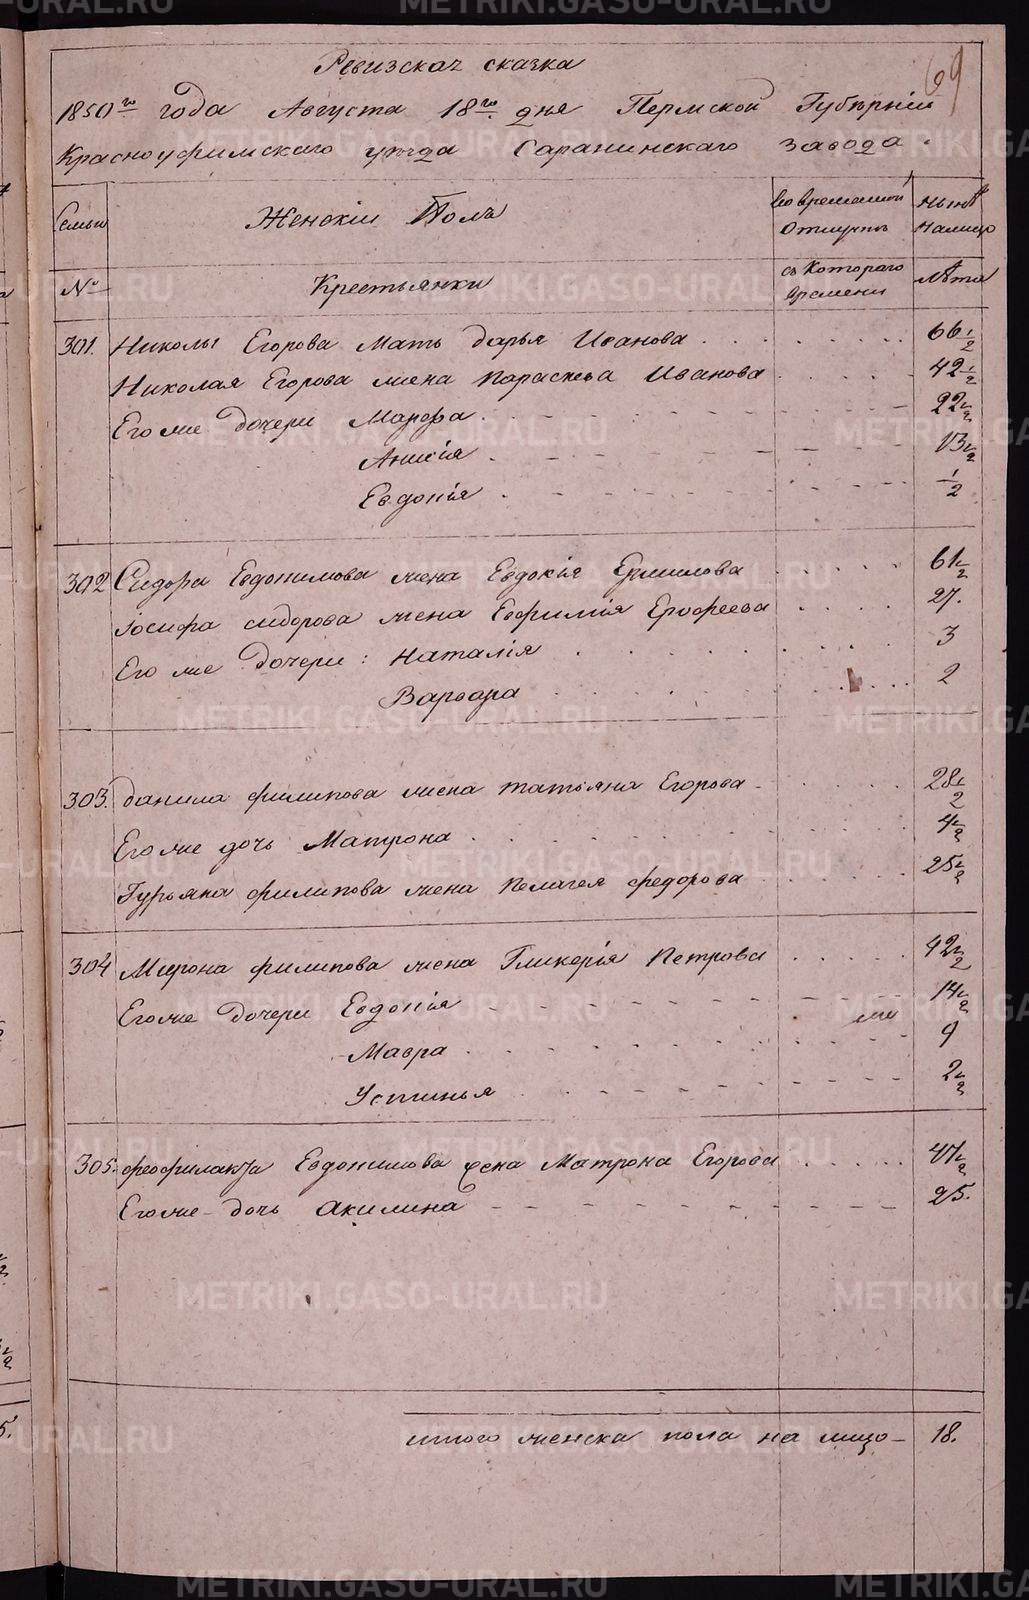 69
Ревизская сказка
1850го года Августа 18го дня Пермской Губѣрніи
Красноуфимскаго уѣзда Саранинскаго завода.
Семьи
Женскій Полъ
Во временной отлучкѣ
нынѣ налицо
№
Крестьянки
съ Котораго времени
лѣта
301. Николы Егорова Мать Дарья Иванова 66 1/2
Николая Егорова жена Параскева Иванова 42 1/2
Его же дочери Марфа 22 1/2
Анисія 13 1/2
Евдокія 1/2
302 Сидора Евдокимова жена Евдокія Ермилова 61 1/2
Іосифа сидорова жена Евфимія Ерофеева 27.
Его же дочери: Наталія 3
Варвара 2
303. Данила филипова жена татьяна Егорова 28 1/2
Его же дочь Матрона 4 1/2
Гурьяна филипова жена Пелагея федорова 25 1/2
304 Мирона филипова жена Гликерія Петрова 42 1/2
Его же дочери Евдокія 14 1/2
Мавра 9
Устинья 2 1/2
305. феофилакта Евдокимова жена Матрона Егорова 47 1/2
Его же дочь Акилина 25.
итого женска пола на лицо 18.
METRIKI.GASO-URAL.RU